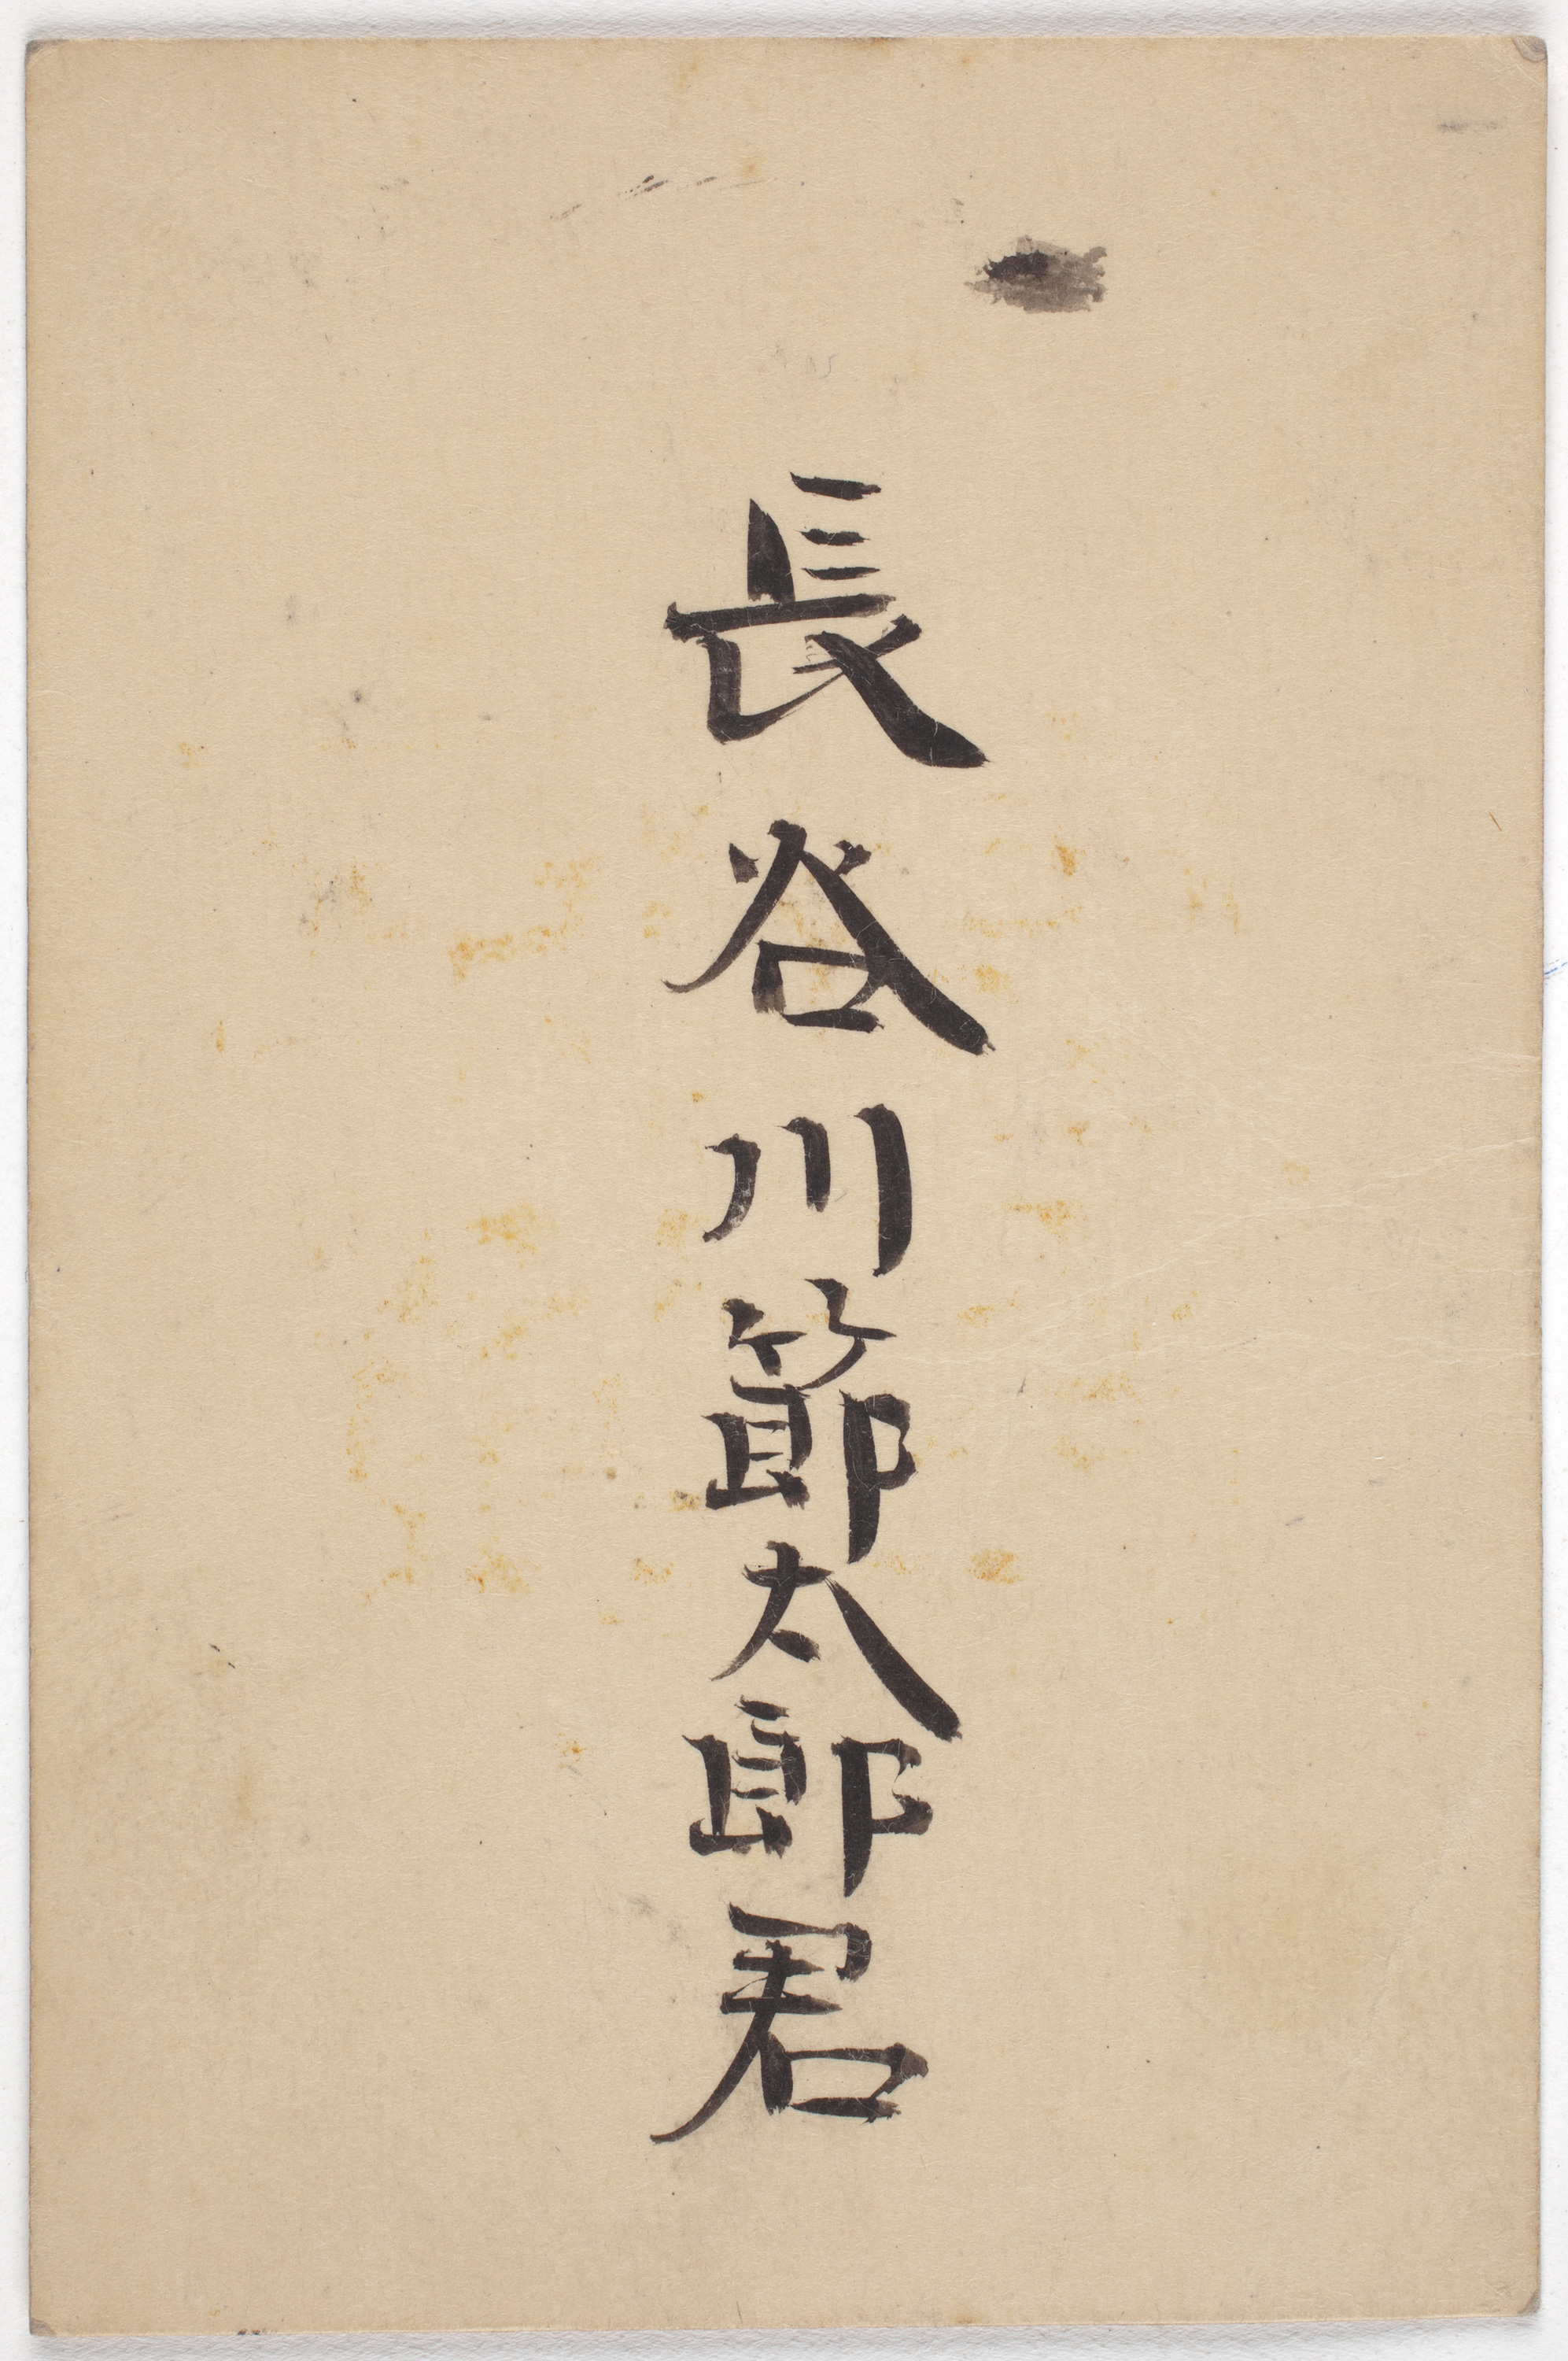 長谷川節太郎君